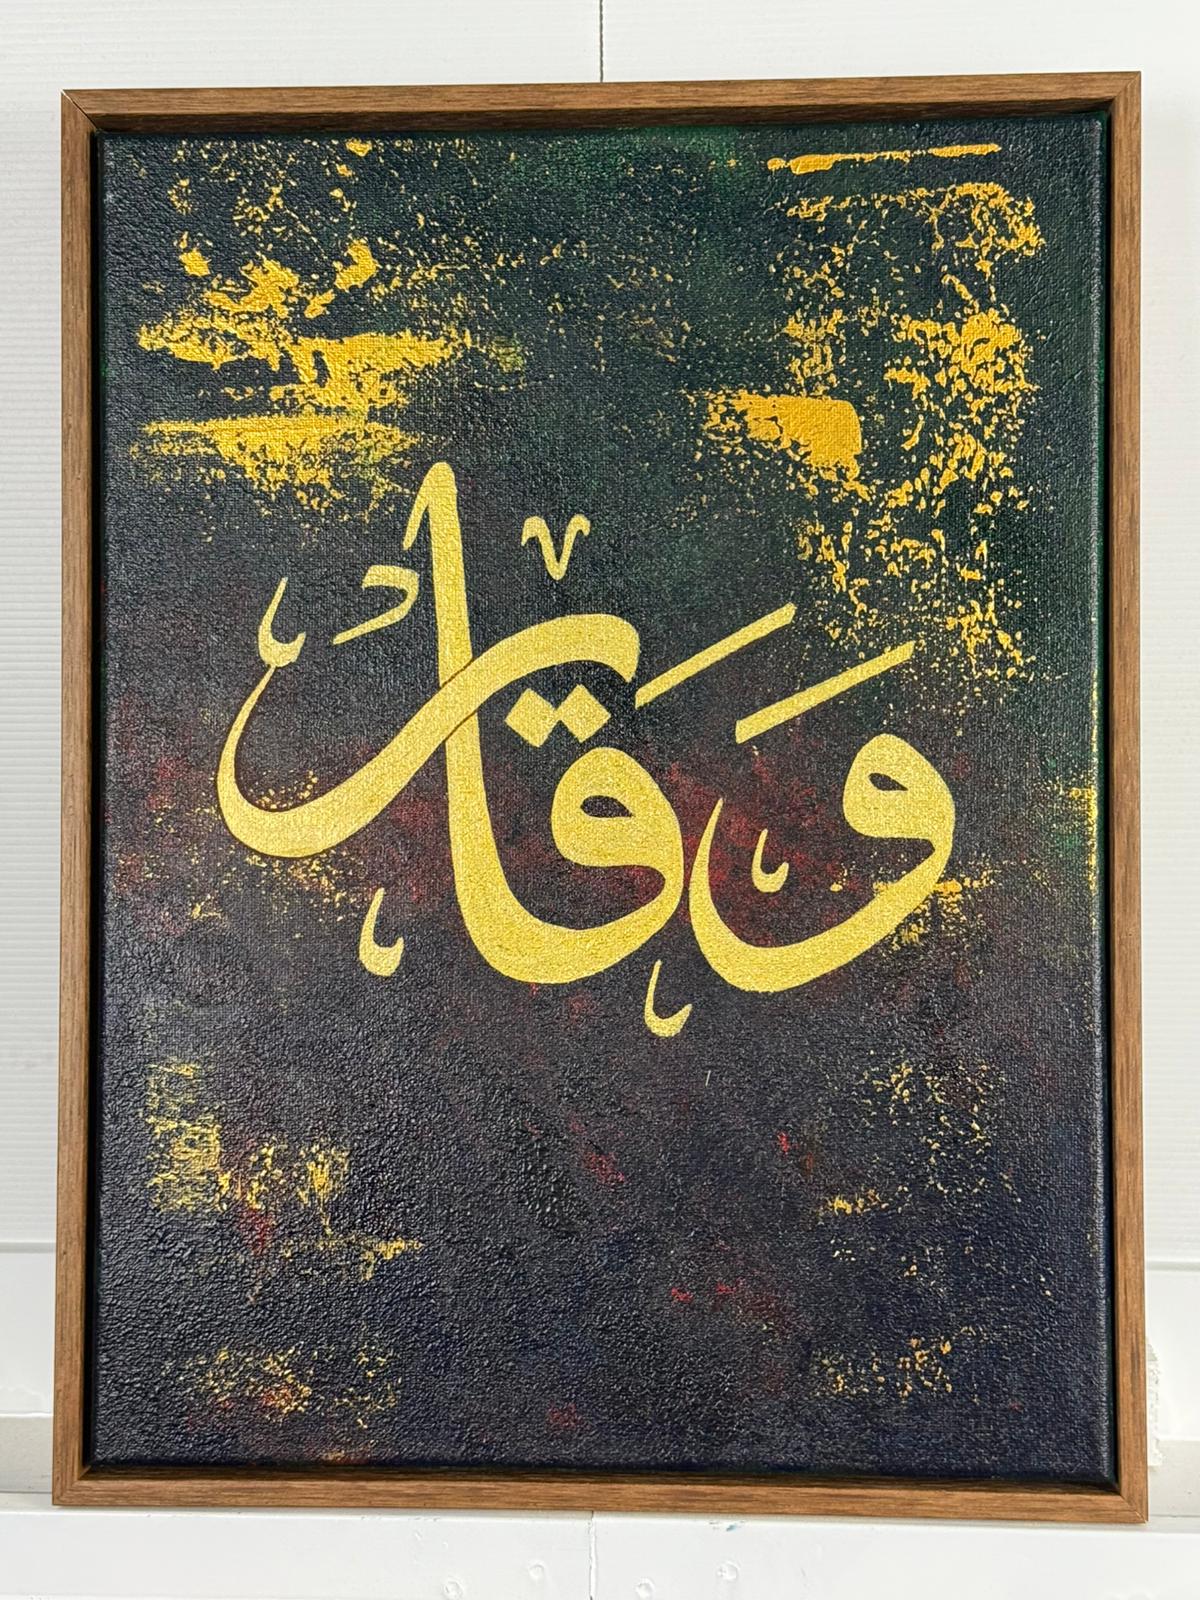 وَقَار